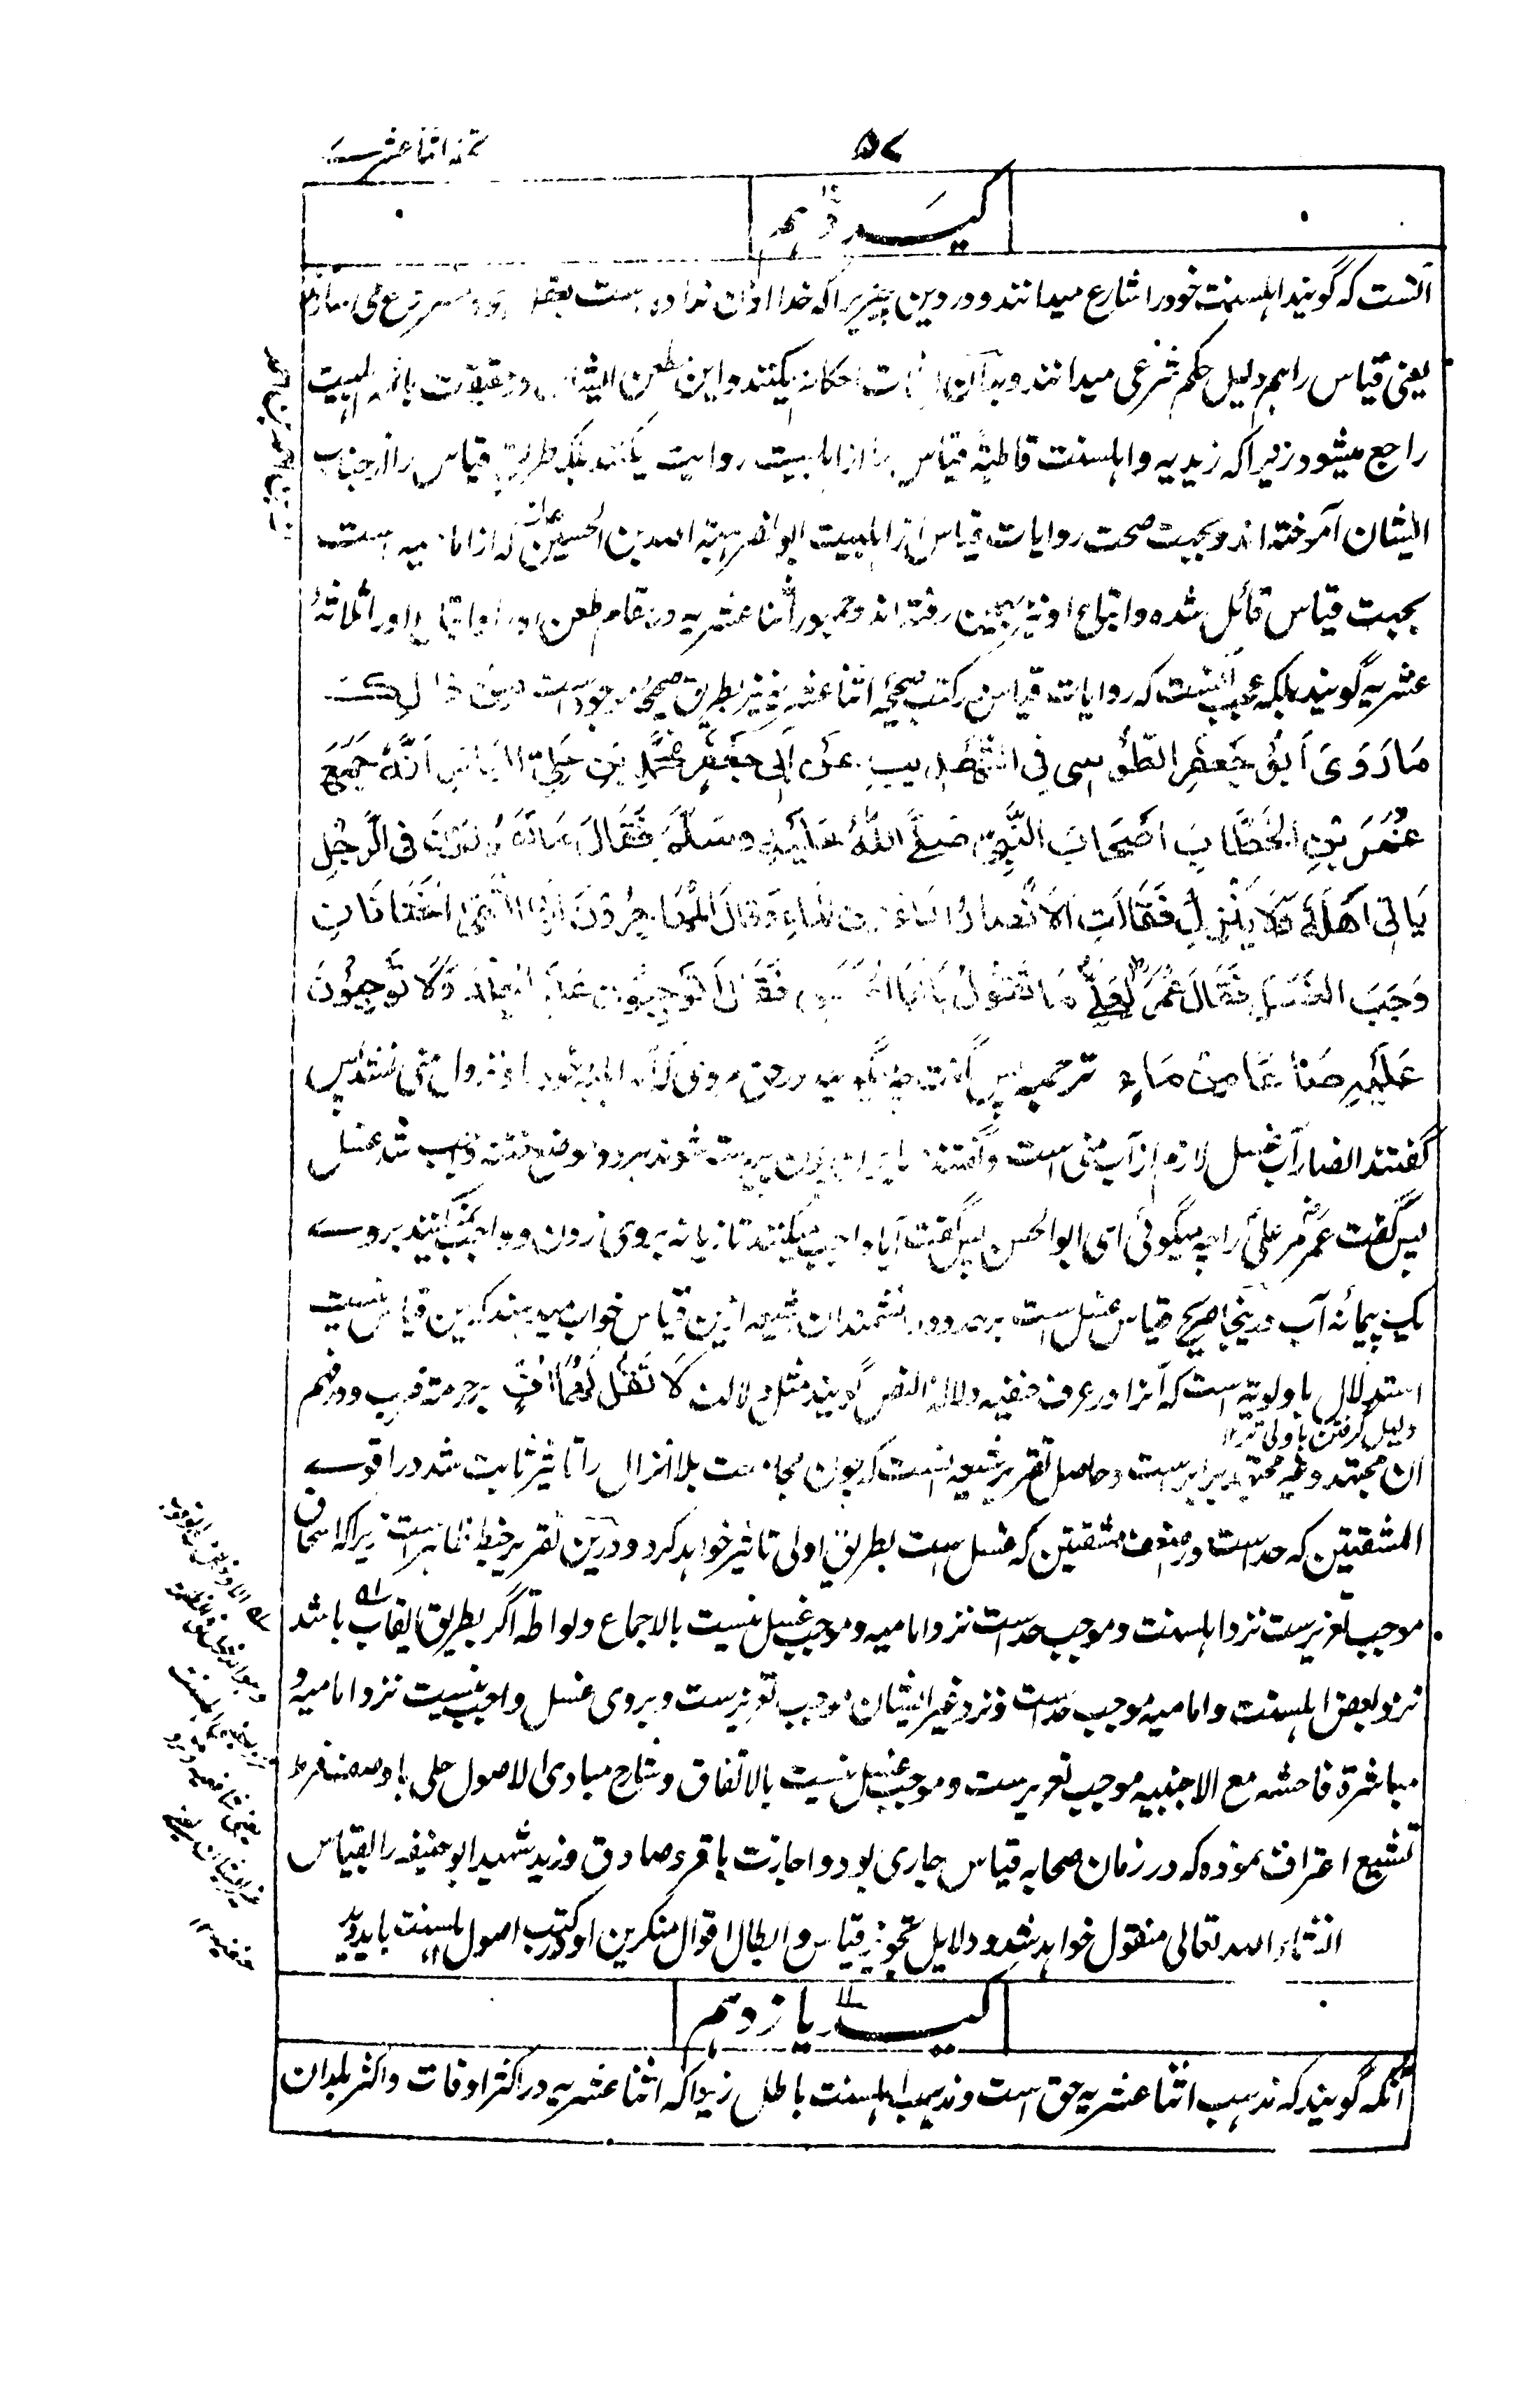 ۵۷
تحفه اثنا عشریه
کید دهم
آنست که گویند اهلسنت خود را شارع میدانند و در دین چیزیرا که خدا اذن نداده است بعقل خود
یعنی قیاس را هم دلیل حکم شرعی میدانند و بدان اثبات احکام میکنند و این طعن ایشان در حقیقت بائمه اهلبیت
راجع میشود زیرا که زیدیه و اهلسنت قاطبةً قیاس را از اهلبیت روایت میکنند بلکه طریق قیاس را از جناب
ایشان آموخته اند و بجهت صحت روایات قیاس از اهلبیت ابو نصر هبة الله بن الحسین که از امامیه است
بحجیت قیاس قائل شده و اتباع او نیز بهمین رفته اند و جمهور اثنا عشریه در مقام طعن او را و اتباع او را ثلاثة
عشریه گویند بلکه عجب آنست که روایات قیاس در کتب صحیحه اثنا عشریه نیز بطریق صحیح موجود است من ذالک
مَا رَوَىٰ اَبُو جَعْفَرِ الطُّوْسِی فی التَّهْذِیبِ عَنْ اَبِی جَعْفَرٍ مُحَمَّدِ بْنِ عَلِیِّ الْبَاقِرِ اَنَّهُ جَمَعَ
عُمَرُ بْنُ الْخَطَّابِ اَصْحَابَ النَّبِیِّ صَلَّی اللهُ عَلَیْهِ وَسَلَّمَ فَقَالَ مَا تَقُولُونَ فِی الرَّجُلِ
یَأتِی اَهْلَهُ وَلَا یُنْزِلُ فَقَالَتِ الْاَنْصَارُ الْمَاءُ مِنَ الْمَاءِ وَقَالَ الْمُهَاجِرُوْنَ اِذَا الْتَقَی الْخِتَانَانِ
وَجَبَ الْغُسْلُ فَقَالَ عُمَرُ لِعَلِیٍّ مَا تَقُولُ یَا اَبَا الْحَسَنِ فَقَالَ اَتُوْجِبُوْنَ عَلَیْهِ الْجَلْدَ وَلَا تُوْجِبُوْنَ
عَلَیْهِ صَاعًا مِنْ مَاءٍ ترجمه پس گفت چه میگویید در حق مردی که بااهل خود و انزال منی نشد پس
گفتند انصار آب غسل لازم از آب منی است و گفتند مهاجران چون پیوست شوند هر دو موضع ختنه واجب شد غسل
پس گفت عمر مر علی را چه میگوئی ای ابوالحسن پس گفت آیا واجب میکنید تازیانه بر وی زدن و واجب نمیکنید بر وے
یک پیمانه آب درینجا صریح قیاس غسل است بر حد و دانشمندان شیعه ازین قیاس جواب میدهند که این قیاس نیست
استدلال باولویت است که آنرا در عرف حنفیه دلالة النص گویند مثل دلالت لَا تَقُلْ لَّهُمَا اُفٍّ بر حرمت ضرب و در فهم
دلیل گرفتن باولی تر ۱۲
آن مجتهد و غیر مجتهد برابر است و حاصل تقریر شیعه اینست که چون مجامعت بلا انزال را تاثیر ثابت شد در اقوی
المشقتین که حد است در اضعف مشقتین که غسل است بطریق اولی تاثیر خواهد کرد و درین تقریر خبط ظاهر است زیرا که اسحاق
موجب تعزیر ست نزد اهلسنت و موجب حد است نزد امامیه و موجب غسل نیست بالاجماع و لواطه اگر بطریق ایقاب باشد
نزد بعض اهلسنت و امامیه موجب حد است و نزد غیر ایشان موجب تعزیر ست و بر وی غسل واجب نیست نزد امامیه و
مباشرة فاحشه مع الاجنبیه موجب تعزیر ست و موجب غسل نیست بالاتفاق و شارح مبادی الاصول حلی با وصف فرط
تشیع اعتراف نموده که در زمان صحابه قیاس جاری بود و اجازت باقر و صادق و زید شهید ابو حنیفه را بقیاس
انشاء الله تعالی منقول خواهد شد و دلایل تجویز قیاس و ابطال اقوال منکرین او در کتب اصول اهلسنت باید دید
کید یازدهم
آنکه گویند که مذهب اثنا عشریه حق است و مذهب اهلسنت باطل زیرا که اثنا عشریه در اکثر اوقات و اکثر بلدان